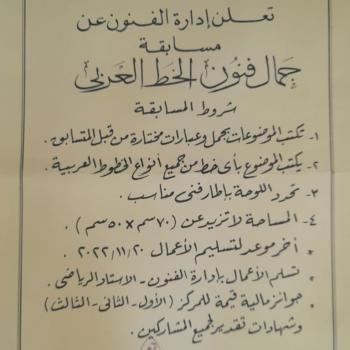 تعلن إدارة الفنون عن
مسابقة
جمال فنون الخط العربي
شروط المسابقة
١- تكتب الموضوعات بجمل وعبارات مختارة من قبل المتسابق .
٢- يكتب الموضوع بأى خط من جميع أنواع الخطوط العربية .
٣- تحدد اللوحة بإطار فنى مناسب .
٤- المساحة لا تزيد عن (٧٠سم × ٥٠سم ) .
* أخر موعد لتسليم الأعمال ٢٠٢٢/١١/٢٠ .
* تسلم الأعمال بإدارة الفنون - الاستاد الرياضى .
* جوائز مالية قيمة للمركز (الأول - الثانى - الثالث)
وشهادات تقدير لجميع المشاركين .